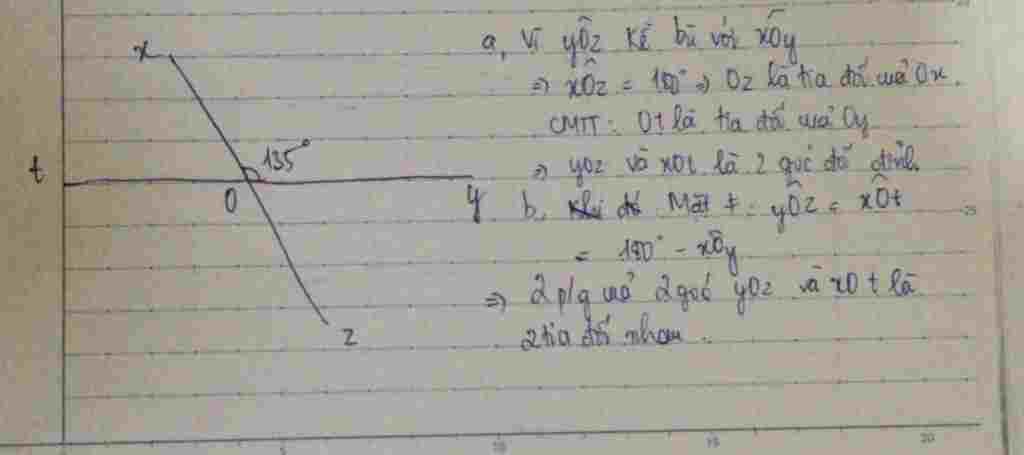 x
135°
t
O
y
z
a, Vì yÔz kề bù với xÔy
=> xÔz = 180° => Oz là tia đối của Ox.
CMTT: Ot là tia đối của Oy
=> yOz và xOt là 2 góc đối đỉnh.
b, Mặt ≠: yÔz = xÔt
= 180° - xÔy
=> 2 p/g của 2 góc yOz và xOt là
2 tia đối nhau.
5
10
15
20
25